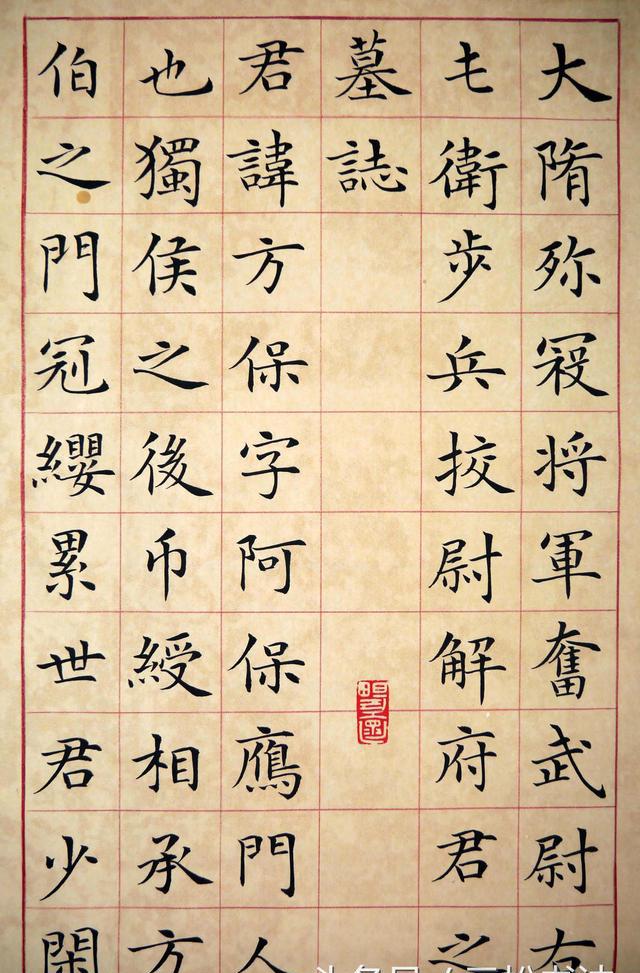 大隋殄寇将軍奮武尉右
屯衛步兵挍尉解府君之
墓誌
君諱方保字阿保鴈門人
也獨侯之後币綬相承方
伯之門冠纓累世君少閑